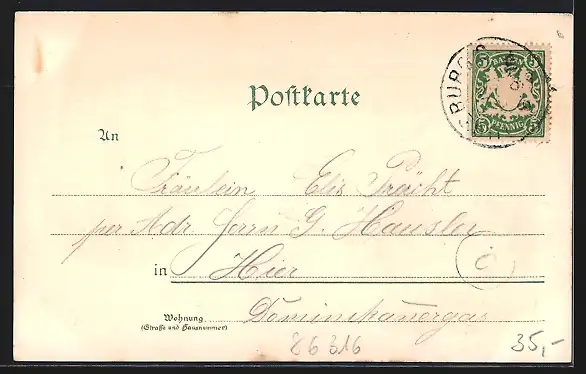 BURG
BAYERN
5 5
5 PFENNIG 5
Postkarte
An
Fräulein Elis Prächt
per Adr Herrn G. Hausler
in Hier
Wohnung
(Straße und Hausnummer)
Dominikanergas
86316
35,-